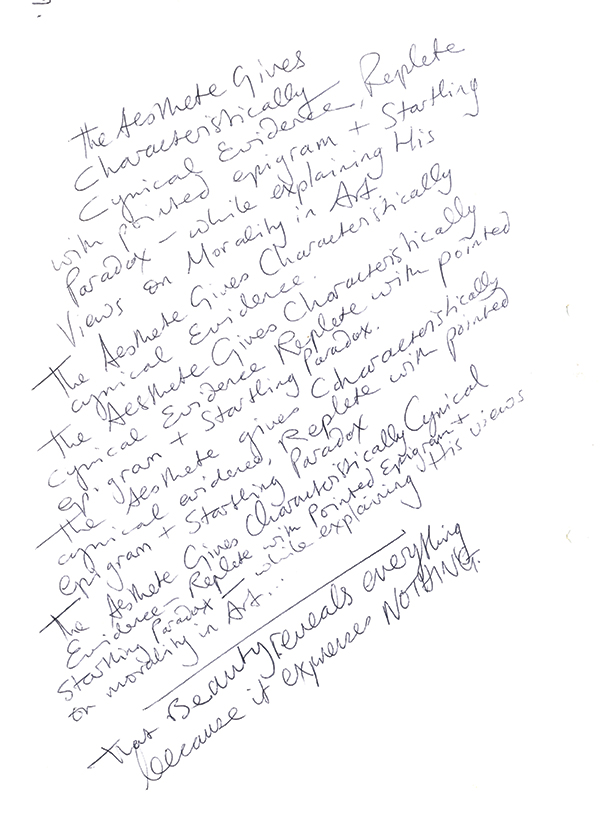 The Aesthete Gives
Characteristically
Cynical Evidence, Replete
with pointed epigram + Startling
Paradox – while explaining His
Views on Morality in Art.
The Aesthete Gives Characteristically
cynical Evidence.
The Aesthete Gives Characteristically
Cynical Evidence Replete with pointed
epigram + Startling Paradox.
The Aesthete gives Characteristically
cynical evidence, Replete with pointed
Epigram + Startling Paradox
The Aesthete Gives Characteristically Cynical
Evidence – Replete with Pointed Epigram +
Startling Paradox – while explaining His views
on morality in Art...
That Beauty reveals everything
because it expresses NOTHING.